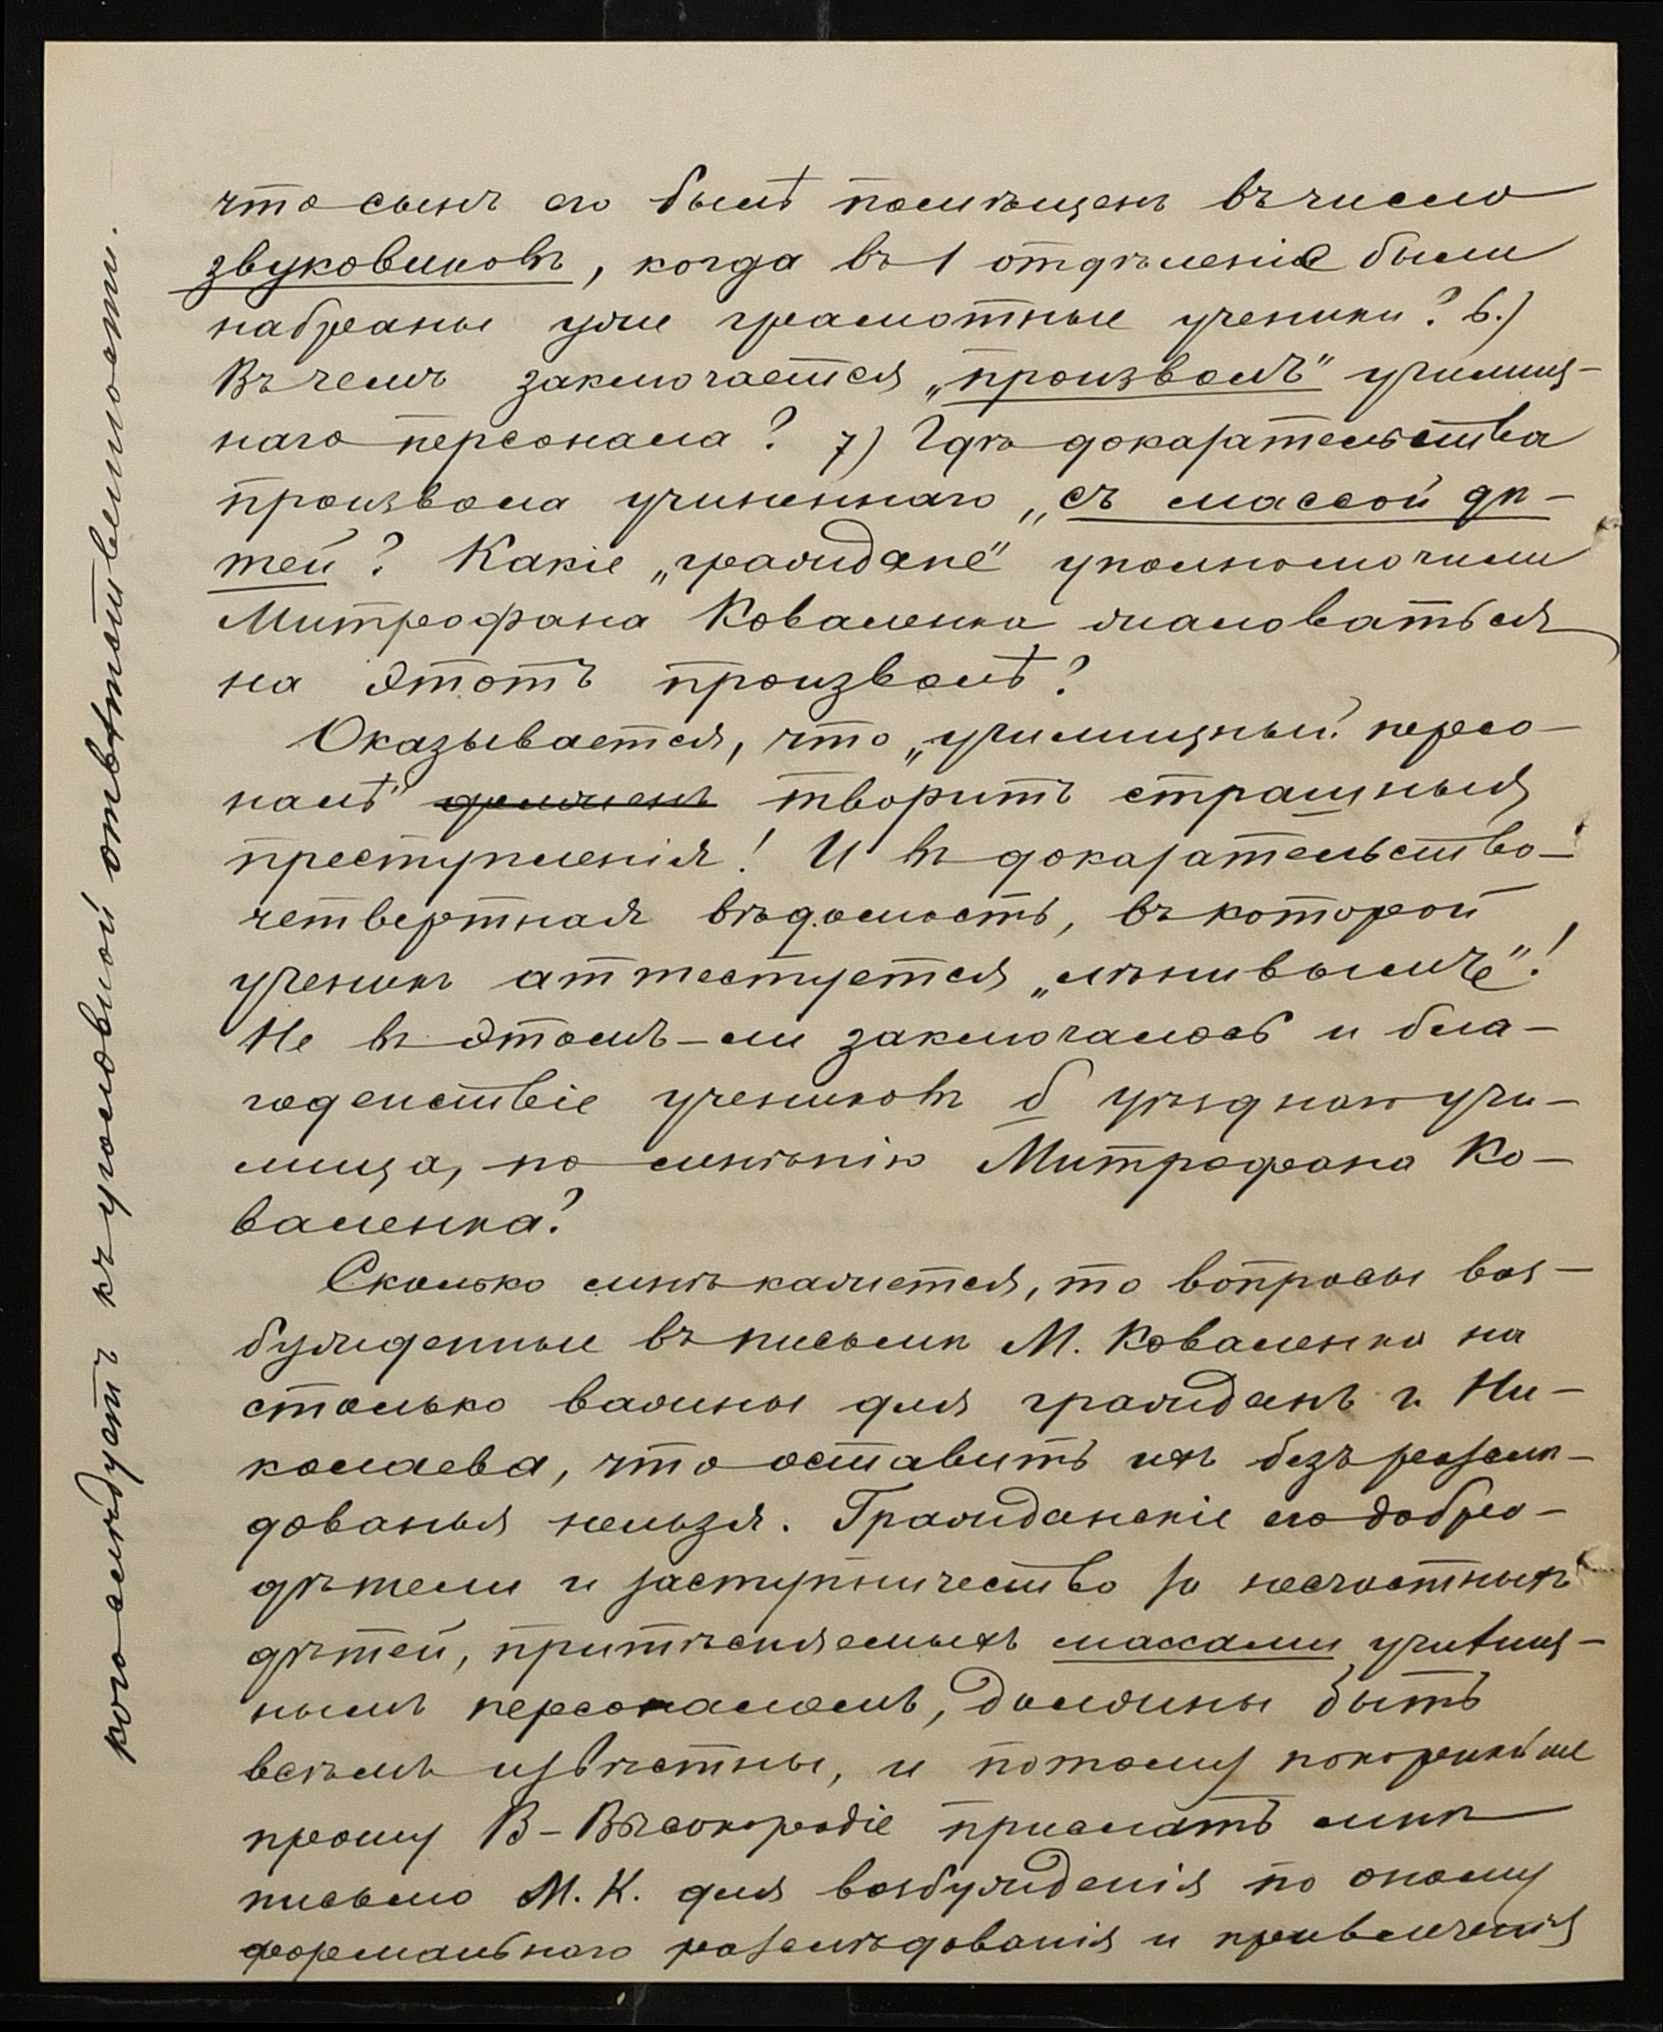 что сынъ его былъ помѣщенъ въ число
звуковиковъ, когда въ 1 отдѣленіе были
набраны уже грамотные ученики? 6.)
Въ чемъ заключается „произволъ" училищ-
наго персонала? 7) Гдѣ доказательства
произвола учиненнаго „съ массой дѣ-
тей? Какіе „граждане" уполномочили
Митрофана Коваленка жаловаться
на этотъ произволъ?
Оказывается, что „училищный персо-
налъ" должень творитъ страшныя
преступленія! И въ доказательство –
четвертная вѣдомость, въ которой
ученикъ аттестуется „лѣнивымъ"!
Не въ этомъ-ли заключалось и бла-
годенствіе учениковъ б уѣзднаго учи-
лища, по мнѣнію Митрофана Ко-
валенка?
Сколько мнѣ кажется, то вопросы воз-
бужденные въ письмѣ М. Коваленка на
столько важны для гражданъ г. Ни-
колаева, что оставить ихъ безъ разслѣ-
дованья нельзя. Гражданскіе его добро-
дѣтели и заступничество за несчастныхъ
дѣтей, притѣсняемыхъ массами училищ-
нымъ персоналомъ, должны быть
всѣмъ извѣстны, и потому покорнѣйше
прошу В-Высокородіе прислать мнѣ
письмо М. К. для возбужденія по оному
формальнаго разслѣдованія и привлеченія
кого слѣдуетъ къ уголовной отвѣтственности.